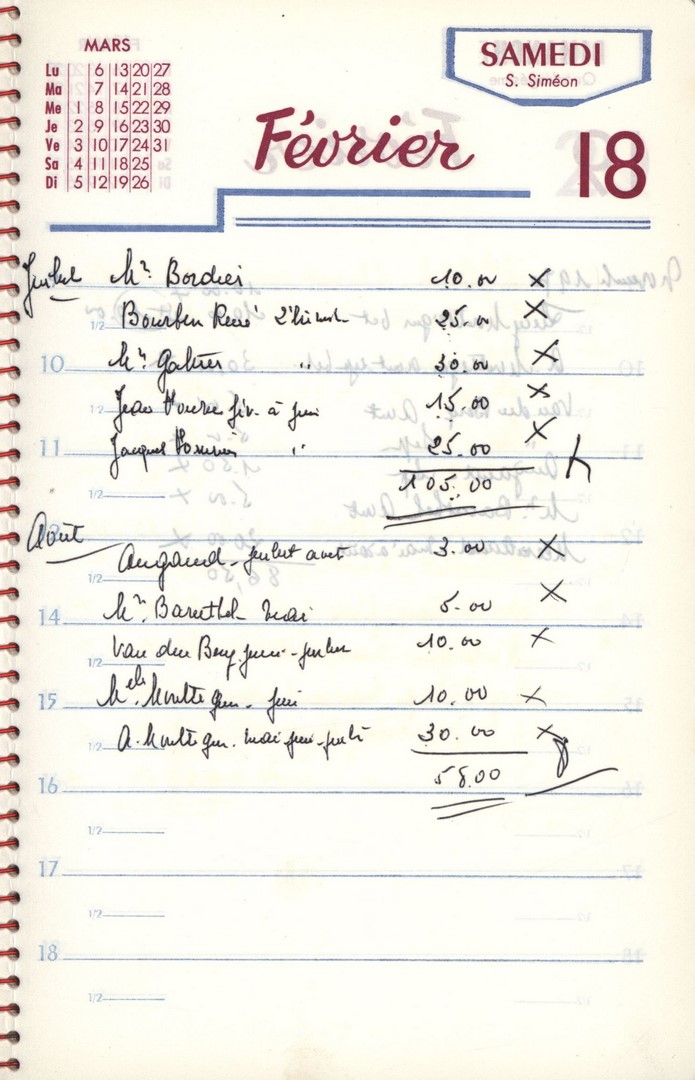 MARS
Lu 6 13 20 27
Ma 7 14 21 28
Me 1 8 15 22 29
Je 2 9 16 23 30
Ve 3 10 17 24 31
Sa 4 11 18 25
Di 5 12 19 26
SAMEDI
S. Siméon
Février 18
Juillet Mr. Bordier 10.00 X
1/2 Bourben René 25.00 X
10 Mr 30.00 X
1/2 Jean fév. à juin 15.00 X
11 Jacques " 25.00 X
105.00
1/2
Août
12 Augaud - juillet août 3.00 X
1/2
14 Mr. Baruthel mai 5.00 X
Van den Berg juin - juillet 10.00 X
1/2
15 Melle juin 10.00 X
1/2 A. mai juin - juill 30.00 X
58.00
16
1/2
17
1/2
18
1/2